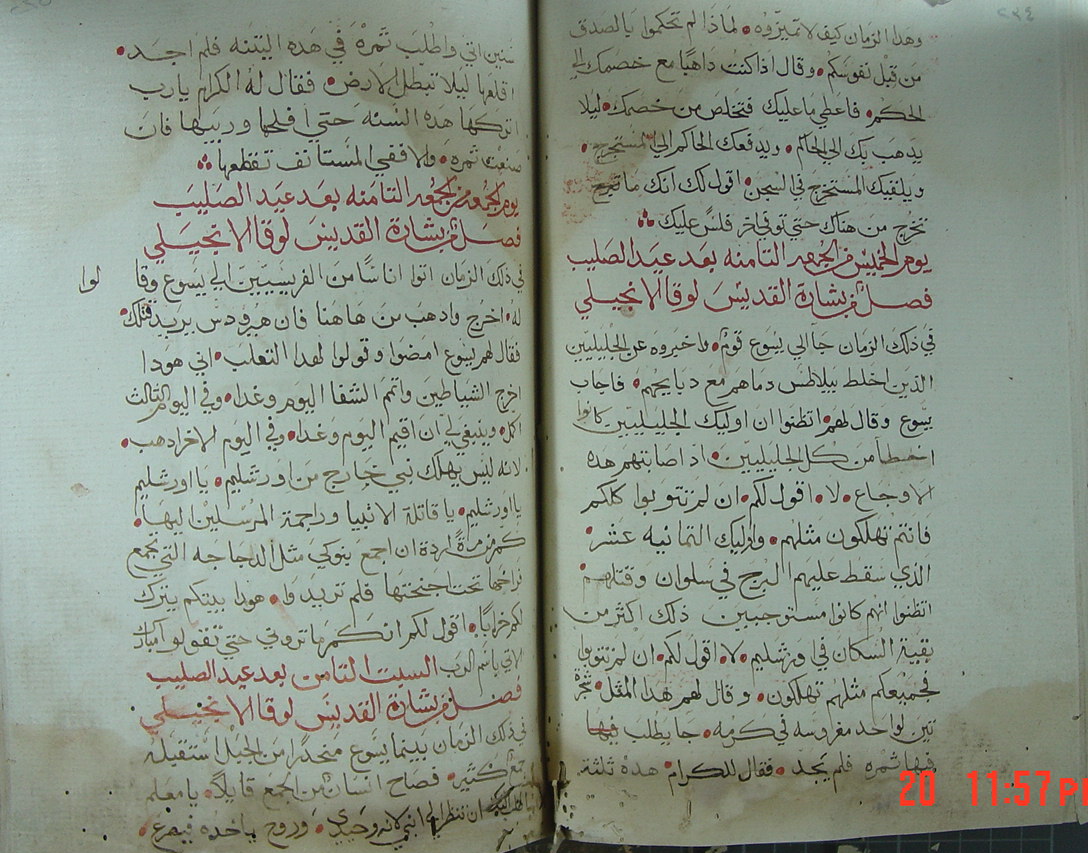 ٢٣٤
وهذا الزمان كيف لا تميزوه • لماذا لم تحكموا بالصدق
من قبل نفوسكم • وقال اذا كنت داهبًا مع خصمك الي
الحكم • فاعطي ما عليك فتخلص من خصمك • ليلا
يدهب بك الي الحاكم • ويدفعك الحاكم الي المستخرج •
ويلقيك المستخرج في السجن • اقول لك انك ما تخرج
تخرج من هناك حتي توفي اخر فلس عليك
يوم الخميس من الجمعه التامنه بعد عيد الصليب
فصل من بشارة القديس لوقا الانجيلي
في ذلك الزمان جا الي يسوع قوم • واخبروه عن الجليليين
الذين اخلط بيلاطس دماهم مع دبايحهم • فاجاب
يسوع وقال لهم • اتظنوا ان اوليك الجليليين كانوا
اخطا من كل الجليليين • اد اصابتهم هده
الاوجاع • لا • اقول لكم • ان لم تتوبوا كلكم
فانتم تهلكون مثلهم • واوليك التمانيه عشر •
الذي سقط عليهم البرج في سلوان وقتلهم
اتظنوا انهم كانوا مستوجبين ذلك اكتر من
بقية السكان في اورشليم • لا • اقول لكم • ان لم تتوبوا
فجميعكم مثلهم تهلكون • وقال لهم هدا المثل • شجرة
تين لواحد مغروسه في كرمه • جا يطلب فيها
فيها ثمره فلم يجد • فقال للكرام • هده ثلثة
سنين اتي واطلب ثمرة في هده التينه فلم اجد •
اقلعها ليلا تبطل الارض • فقال له الكرام يارب
اتركها هده السنه حتي افلحها وربيها فان
صنعت ثمره • والا ففي المستانف تقطعها
يوم الجمعه من الجمعه التامنه بعد عيد الصليب
فصل من بشارة القديس لوقا الانجيلي
في ذلك الزمان اتوا اناسًا من الفريسيين الي يسوع وقا
لوا
له • اخرج وادهب من هاهنا فان هيرودس يريد قتلك •
فقال لهم يسوع امضوا وقولوا لهدا التعلب • اني هودا
اخرج الشياطين واتمم الشفا اليوم وغدا • وفي اليوم التالت
اكمل • وينبغي لي ان اقيم اليوم وغدا • وفي اليوم الاخر ادهب •
لانه ليس يهلك نبي خارج من اورشليم • يا اورشليم
يا اورشليم • يا قاتلة الانبيا وراجمة المرسلين اليها •
كم من مرةً اردة ان اجمع بنوكي مثل الدجاجه التي تجمع
فراخها تحت اجنحتها فلم تريدوا • هودا بيتكم يترك
لكم خرابًا • اقول لكم انكم ما تروني حتي تقولوا مبارك
الاتي باسم الرب السبت التامن بعد عيد الصليب
فصل من بشارة القديس لوقا الانجيلي
في ذلك الزمان بينما يسوع منحدرا من الجبل استقبله
جمع كتير • فصاح انسان من الجمع قايلًا • يا معلم
اطلب اليك ان تنظر الي ابني لانه وحيدي • وروح ياخده فيصرع •
20 11:57PM